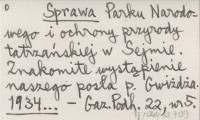 Sprawa Parku Narodo-
wego i ochrony przyrody
tatrzańskiej w Sejmie.
Znakomite wystąpienie
naszego posła p. Gwiżdża.
1934... – Gaz. Podh. 22, nr 5.